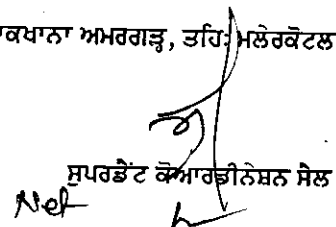 ਾਕਖਾਨਾ ਅਮਰਗੜ੍ਹ, ਤਹਿ: ਮਲੇਰਕੋਟਲ
ਸੁਪਰਡੈਂਟ ਕੋਆਰਡੀਨੇਸ਼ਨ ਸੈਲ